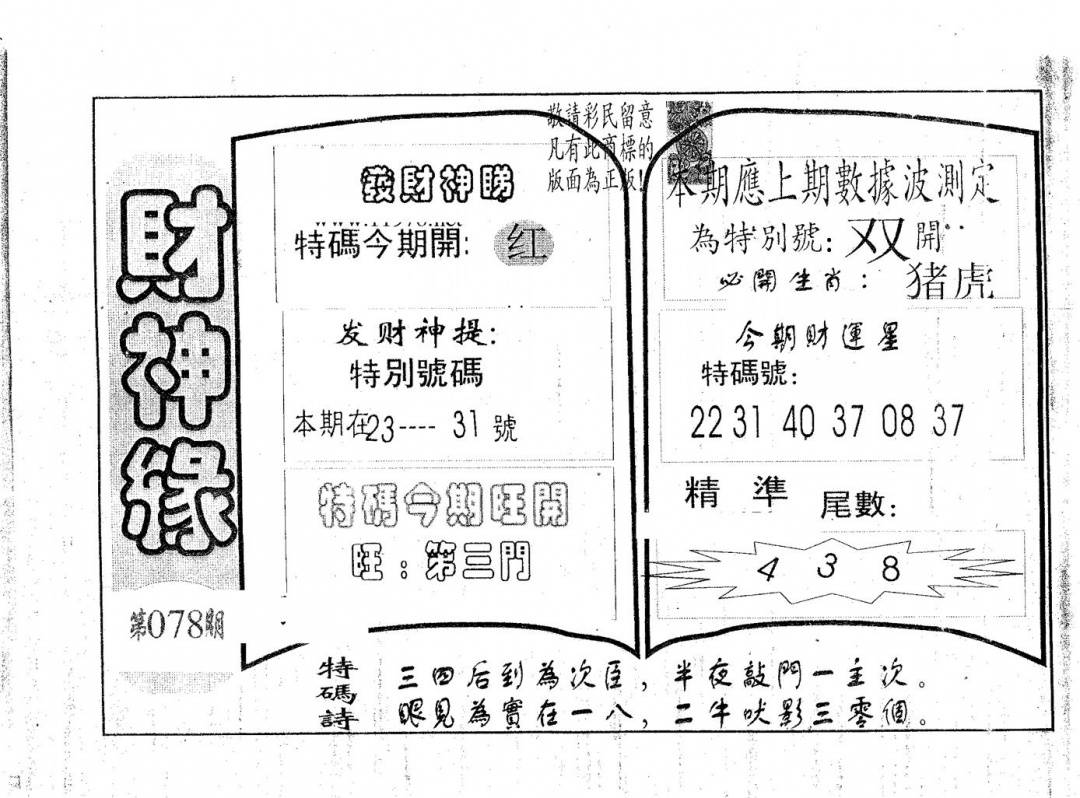 財神緣
第078期
敬請彩民留意
凡有此商標的
版面為正版!
發財神睇
特碼今期開: 红
发财神提:
特別號碼
本期在23---- 31號
特碼今期旺開
旺:第三門
本期應上期數據波測定
為特別號: 双開
必開生肖: 猪虎
今期財運星
特碼號:
22 31 40 37 08 37
精準 尾數:
4 3 8
特碼詩
三四后到為次臣,半夜敲門一主次。
眼見為實在一八,二牛吠影三零個。